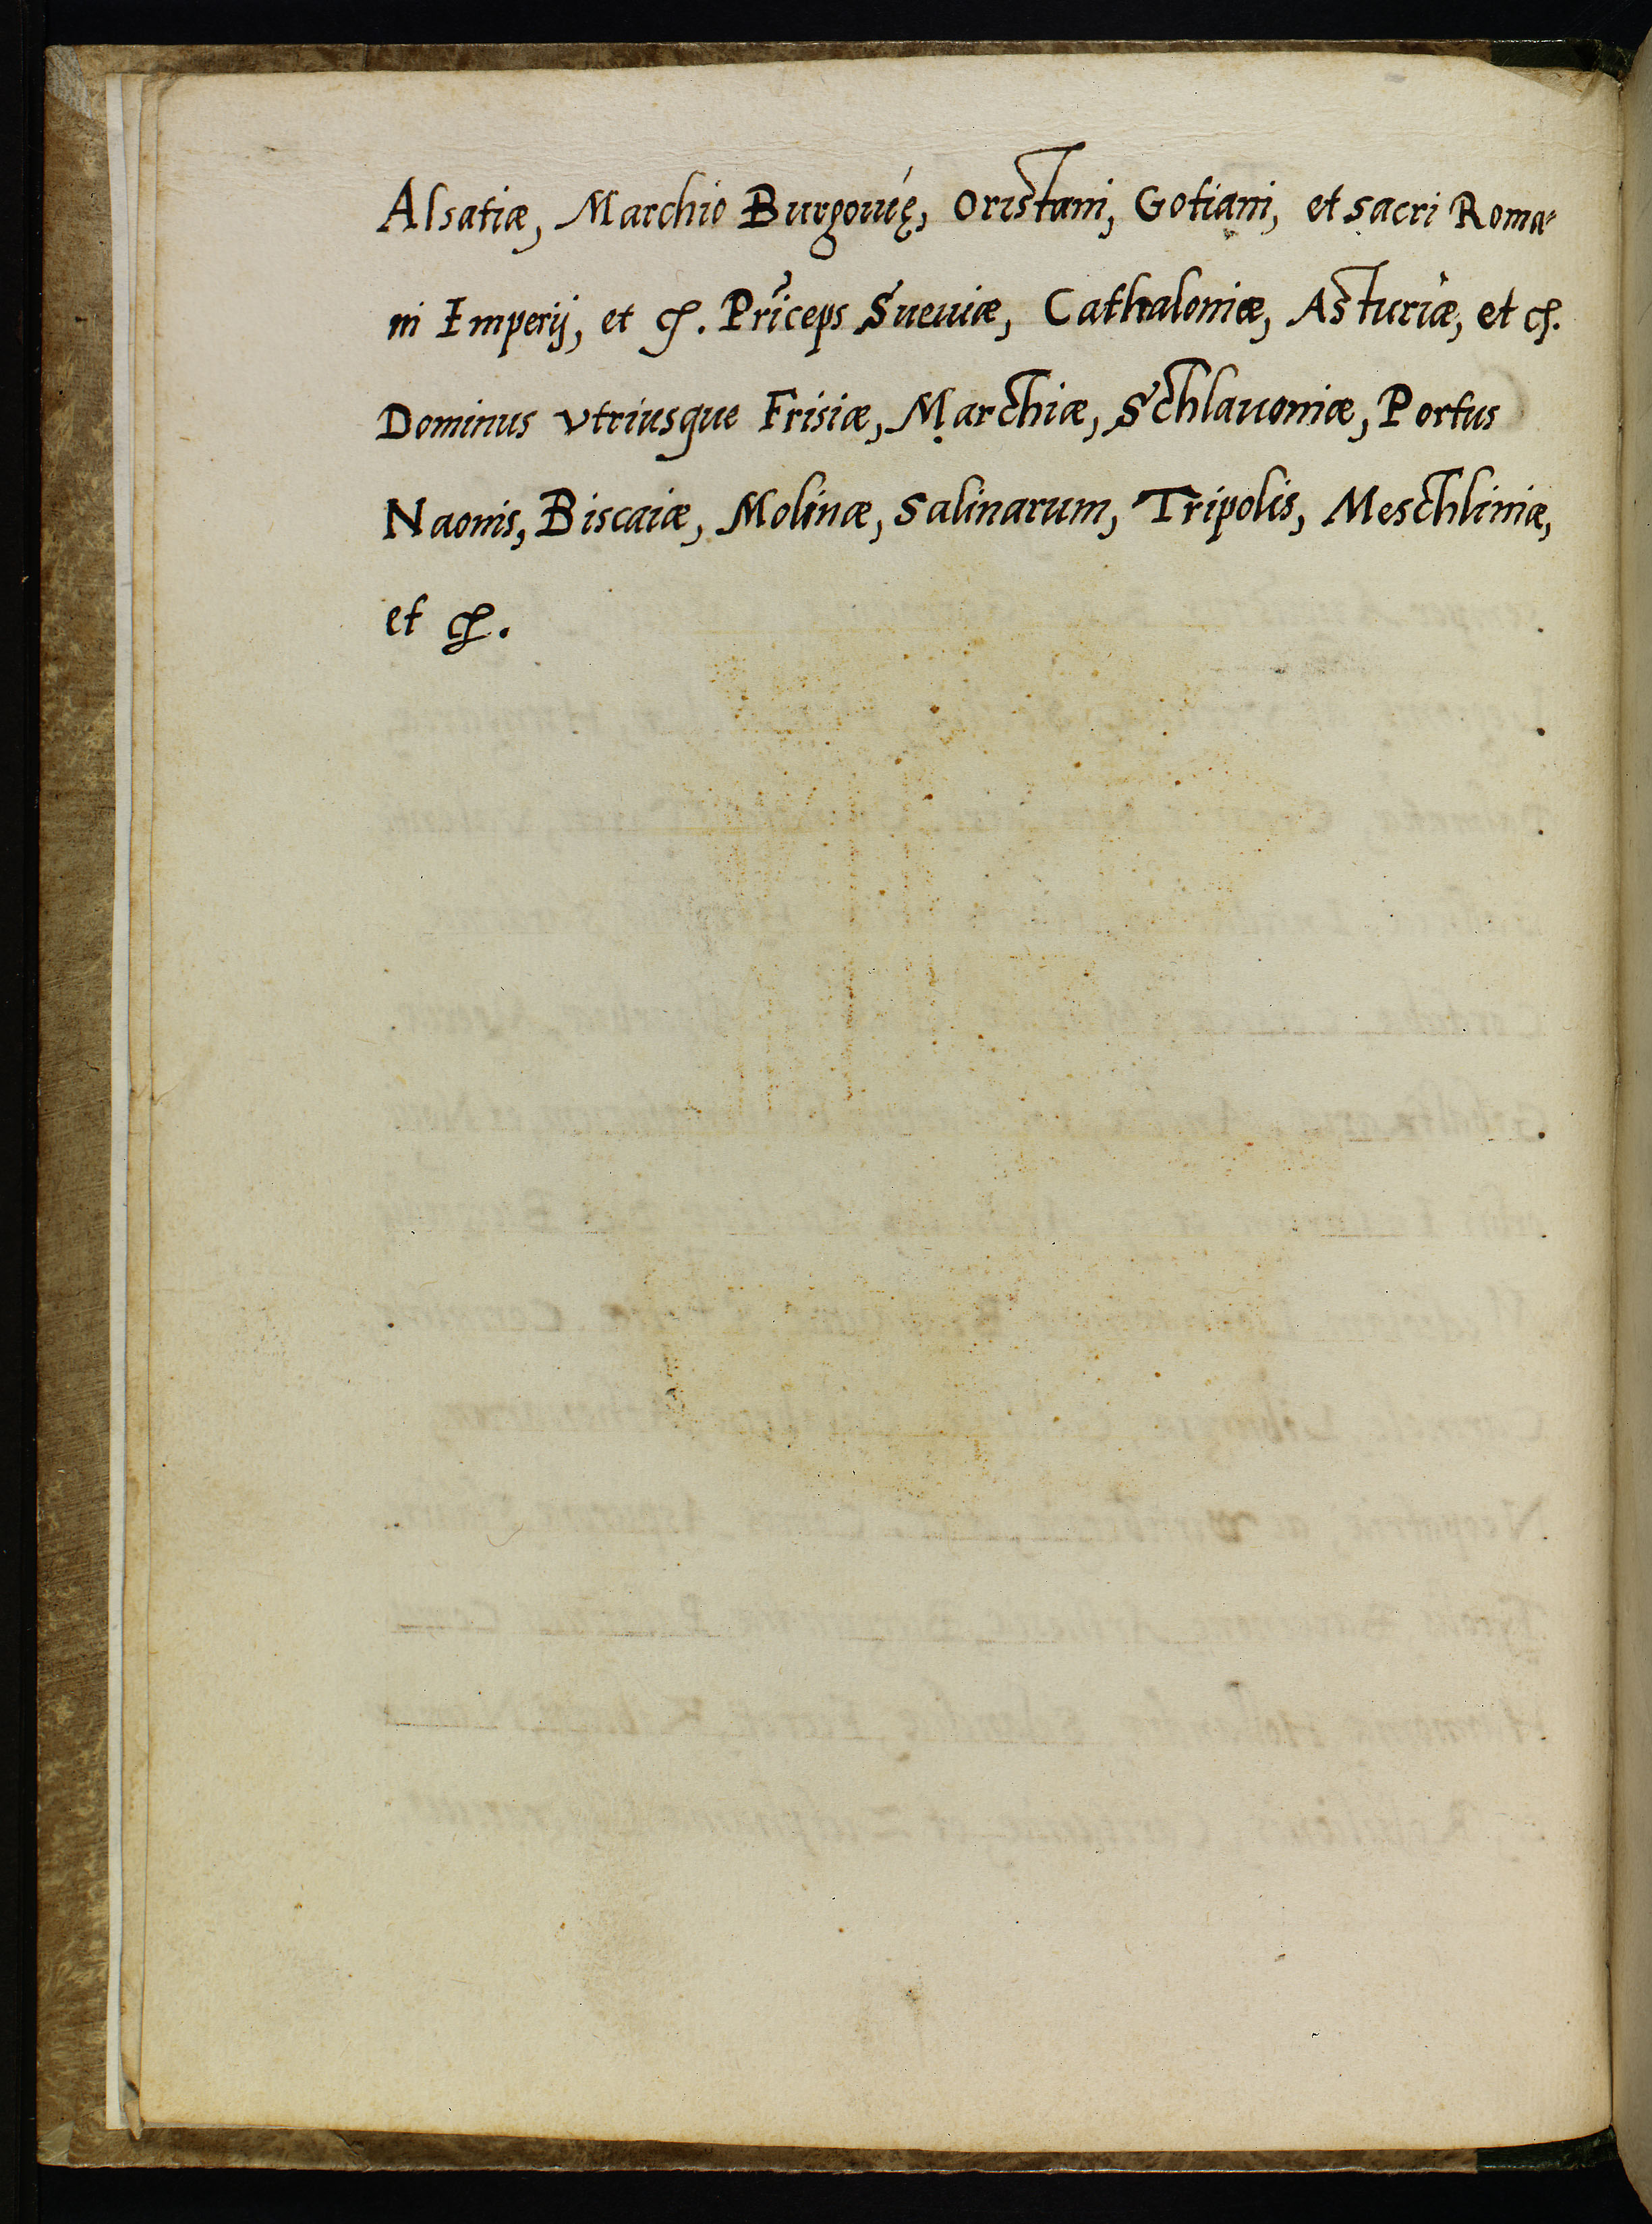 Alsatiæ, Marchio Burgouię, Oristani, Gotiani, et sacri Roma-
ni Imperij, et cȩ. Prĩceps Sueuiæ, Cathaloniæ, Asturiæ, et cȩ.
Dominus vtriusque Frisiæ, Marchiæ, Schlauoniæ, Portus
Naonis, Biscaiæ, Molinæ, Salinarum, Tripolis, Meschliniæ,
et cȩ.